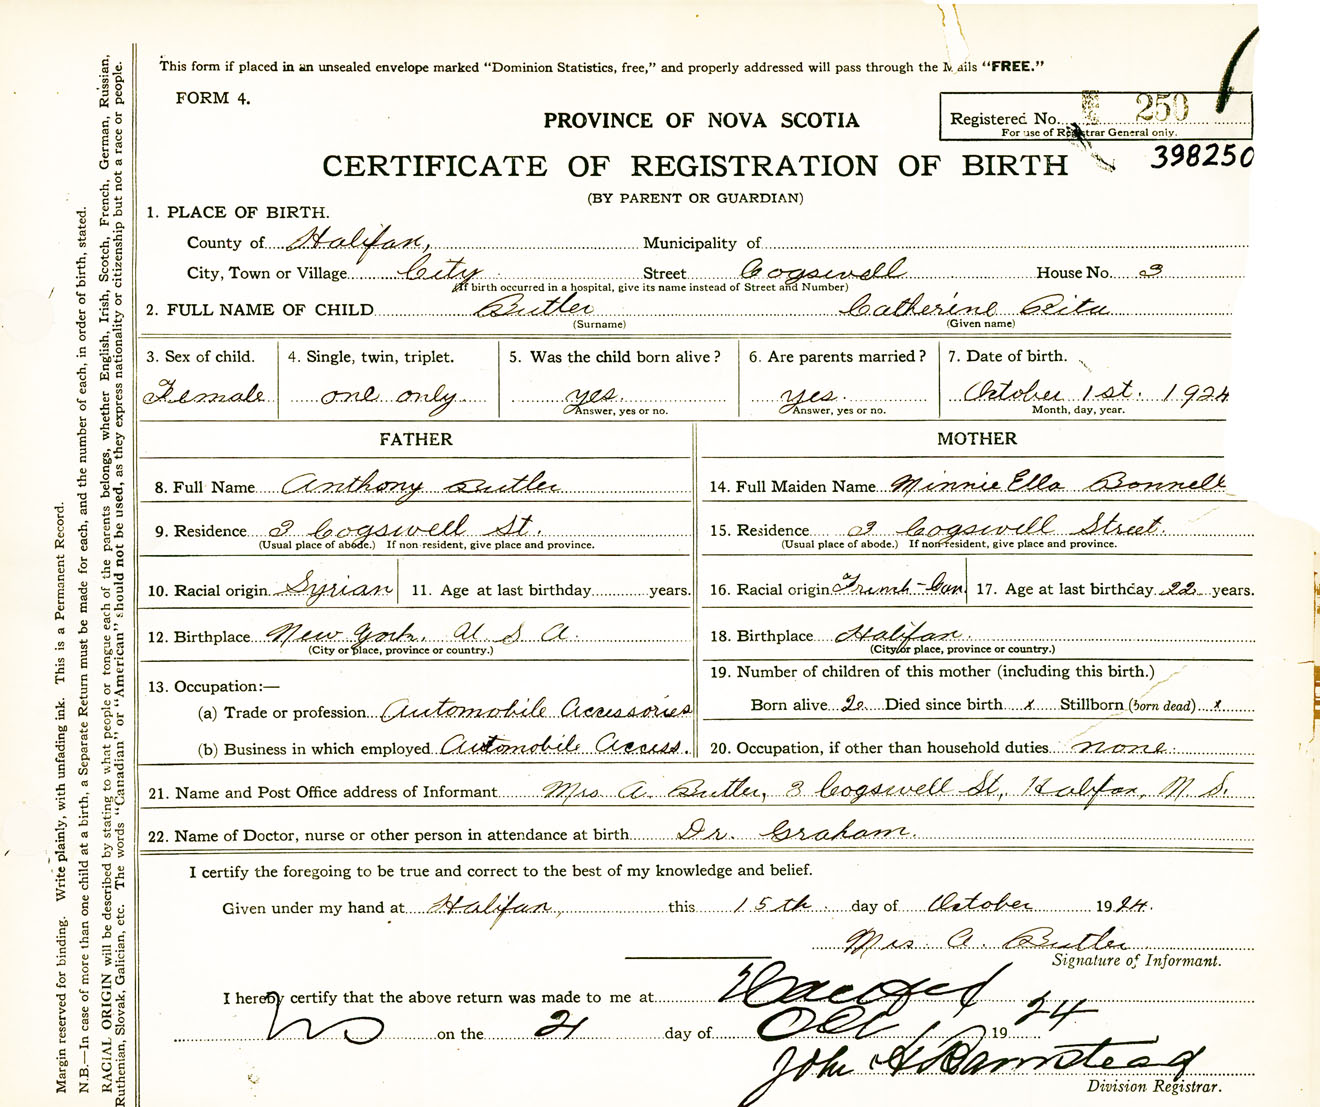 This form if placed in an unsealed envelope marked "Dominion Statistics, free," and properly addressed will pass through the Mails "FREE."
FORM 4.
PROVINCE OF NOVA SCOTIA
Registered No. 250
For use of Registrar General only.
398250
CERTIFICATE OF REGISTRATION OF BIRTH
(BY PARENT OR GUARDIAN)
1. PLACE OF BIRTH.
County of Halifax, Municipality of
City, Town or Village City Street Cogswell House No. 3
(If birth occurred in a hospital, give its name instead of Street and Number)
2. FULL NAME OF CHILD Butler Catherine Rita
(Surname) (Given name)
3. Sex of child. 4. Single, twin, triplet. 5. Was the child born alive? 6. Are parents married? 7. Date of birth.
Female one only yes. yes. October 1st. 1924
Answer, yes or no. Answer, yes or no. Month, day, year.
FATHER MOTHER
8. Full Name Anthony Butler 14. Full Maiden Name Minnie Ella Bonnell
9. Residence 3 Cogswell St. 15. Residence 3 Cogswell Street.
(Usual place of abode.) If non-resident, give place and province. (Usual place of abode.) If non-resident, give place and province.
10. Racial origin Syrian 11. Age at last birthday years. 16. Racial origin French-Can 17. Age at last birthday 22 years.
12. Birthplace New York. U S A. 18. Birthplace Halifax.
(City or place, province or country.) (City or place, province or country.)
19. Number of children of this mother (including this birth.)
13. Occupation:—
(a) Trade or profession Automobile Accessories Born alive 2 Died since birth x Stillborn (born dead) x
(b) Business in which employed Automobile Access. 20. Occupation, if other than household duties none.
21. Name and Post Office address of Informant Mrs A. Butler, 3 Cogswell St, Halifax, N S.
22. Name of Doctor, nurse or other person in attendance at birth Dr. Graham.
I certify the foregoing to be true and correct to the best of my knowledge and belief.
Given under my hand at Halifax, this 15th. day of October 1924.
Mrs. A. Butler
Signature of Informant.
I hereby certify that the above return was made to me at
on the 21 day of Oct 1924
John
Division Registrar.
Margin reserved for binding. Write plainly, with unfading ink. This is a Permanent Record.
N.B.—In case of more than one child at a birth, a Separate Return must be made for each, and the number of each, in order of birth, stated.
RACIAL ORIGIN will be described by stating to what people or tongue each of the parents belongs, whether English, Irish, Scotch, French, German, Russian,
Ruthenian, Slovak, Galician, etc. The words "Canadian" or "American" should not be used, as they express nationality or citizenship but not a race or people.